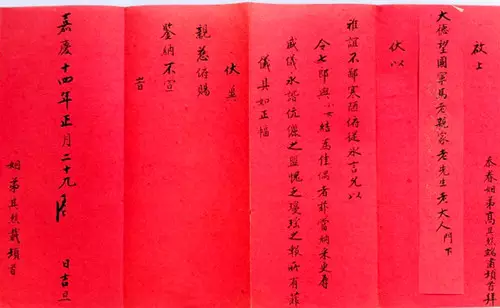 啟上
忝眷姻弟馬
頓首拜
大德望國學馬老親家老先生老大人門下
伏以
雅誼不鄙寒陋俯從永言兄以
令七郎與小女結為佳偶者菲當納采更辱
威儀永諧伉儷之盟愧乏瓊綜之報所有菲
儀具如正幅
伏冀
親慈俯賜
鑒納不宣
嘉慶十四年正月二十九
日吉旦
姻弟具
頓首